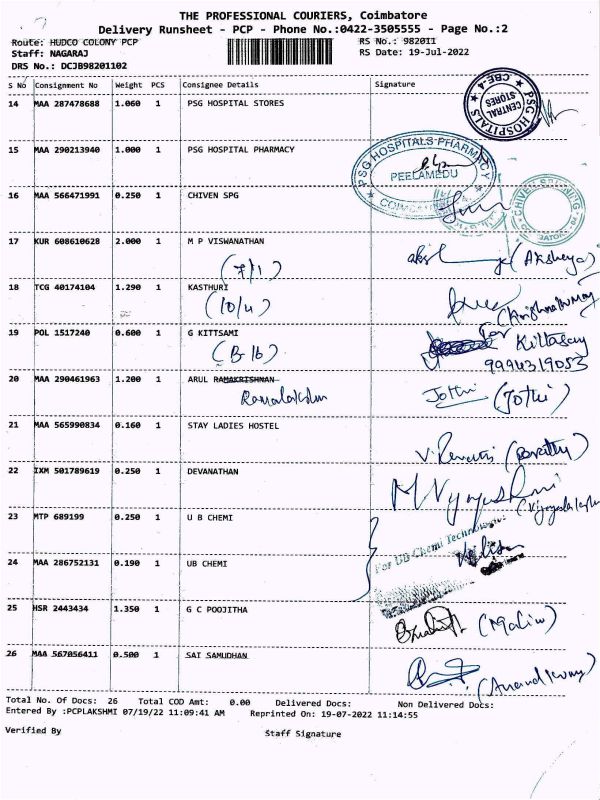 THE PROFESSIONAL COURIERS, Coimbatore
Delivery Runsheet - PCP - Phone No.:0422-3505555 - Page No.:2
Route: HUDCO COLONY PCP RS No.: 982011
Staff: NAGARAJ RS Date: 19-Jul-2022
DRS No.: DCJB98201102
S No Consignment No Weight PCS Consignee Details Signature
14 MAA 287478688 1.060 1 PSG HOSPITAL STORES
PSG HOSPITALS CENTRAL STORES CBE-4
15 MAA 290213940 1.000 1 PSG HOSPITAL PHARMACY
PSG HOSPITALS PHARMACY PEELAMEDU
16 MAA 566471991 0.250 1 CHIVEN SPG
17 KUR 608610628 2.000 1 M P VISWANATHAN
(7/1) (Akshaya)
18 TCG 40174104 1.290 1 KASTHURI
(10/4)
19 POL 1517240 0.600 1 G KITTSAMI for
(B-16) Kittasay
9994319053
20 MAA 290461963 1.200 1 ARUL RAMAKRISHNAN Jothi (Jothi)
21 MAA 565990834 0.160 1 STAY LADIES HOSTEL
V. Revathi
22 IXM 501789619 0.250 1 DEVANATHAN
23 MTP 689199 0.250 1 U B CHEMI
For UB Chemi Technologies
24 MAA 286752131 0.190 1 UB CHEMI
25 HSR 2443434 1.350 1 G C POOJITHA
26 MAA 567056411 0.500 1 SAI SAMUDHAN
Total No. Of Docs: 26 Total COD Amt: 0.00 Delivered Docs: Non Delivered Docs:
Entered By :PCPLAKSHMI 07/19/22 11:09:41 AM Reprinted On: 19-07-2022 11:14:55
Verified By Staff Signature